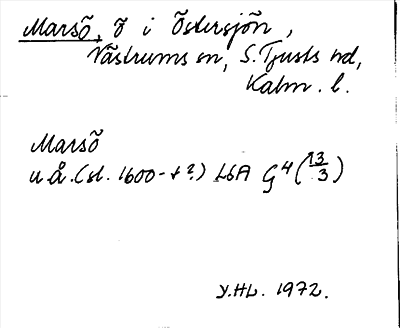 Marsö, Ö i Östersjön,
Västrums sn, S. Tjusts hd,
Kalm. l.
Marsö
u.å. (sl. 1600-t?) LSA G4 (13/3)
Y.HL. 1972.